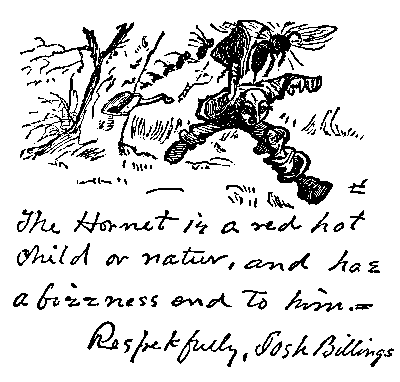 The Hornet is a red hot
child or natur, and has
a bizzness end to him.=
Respekfully, Josh Billings